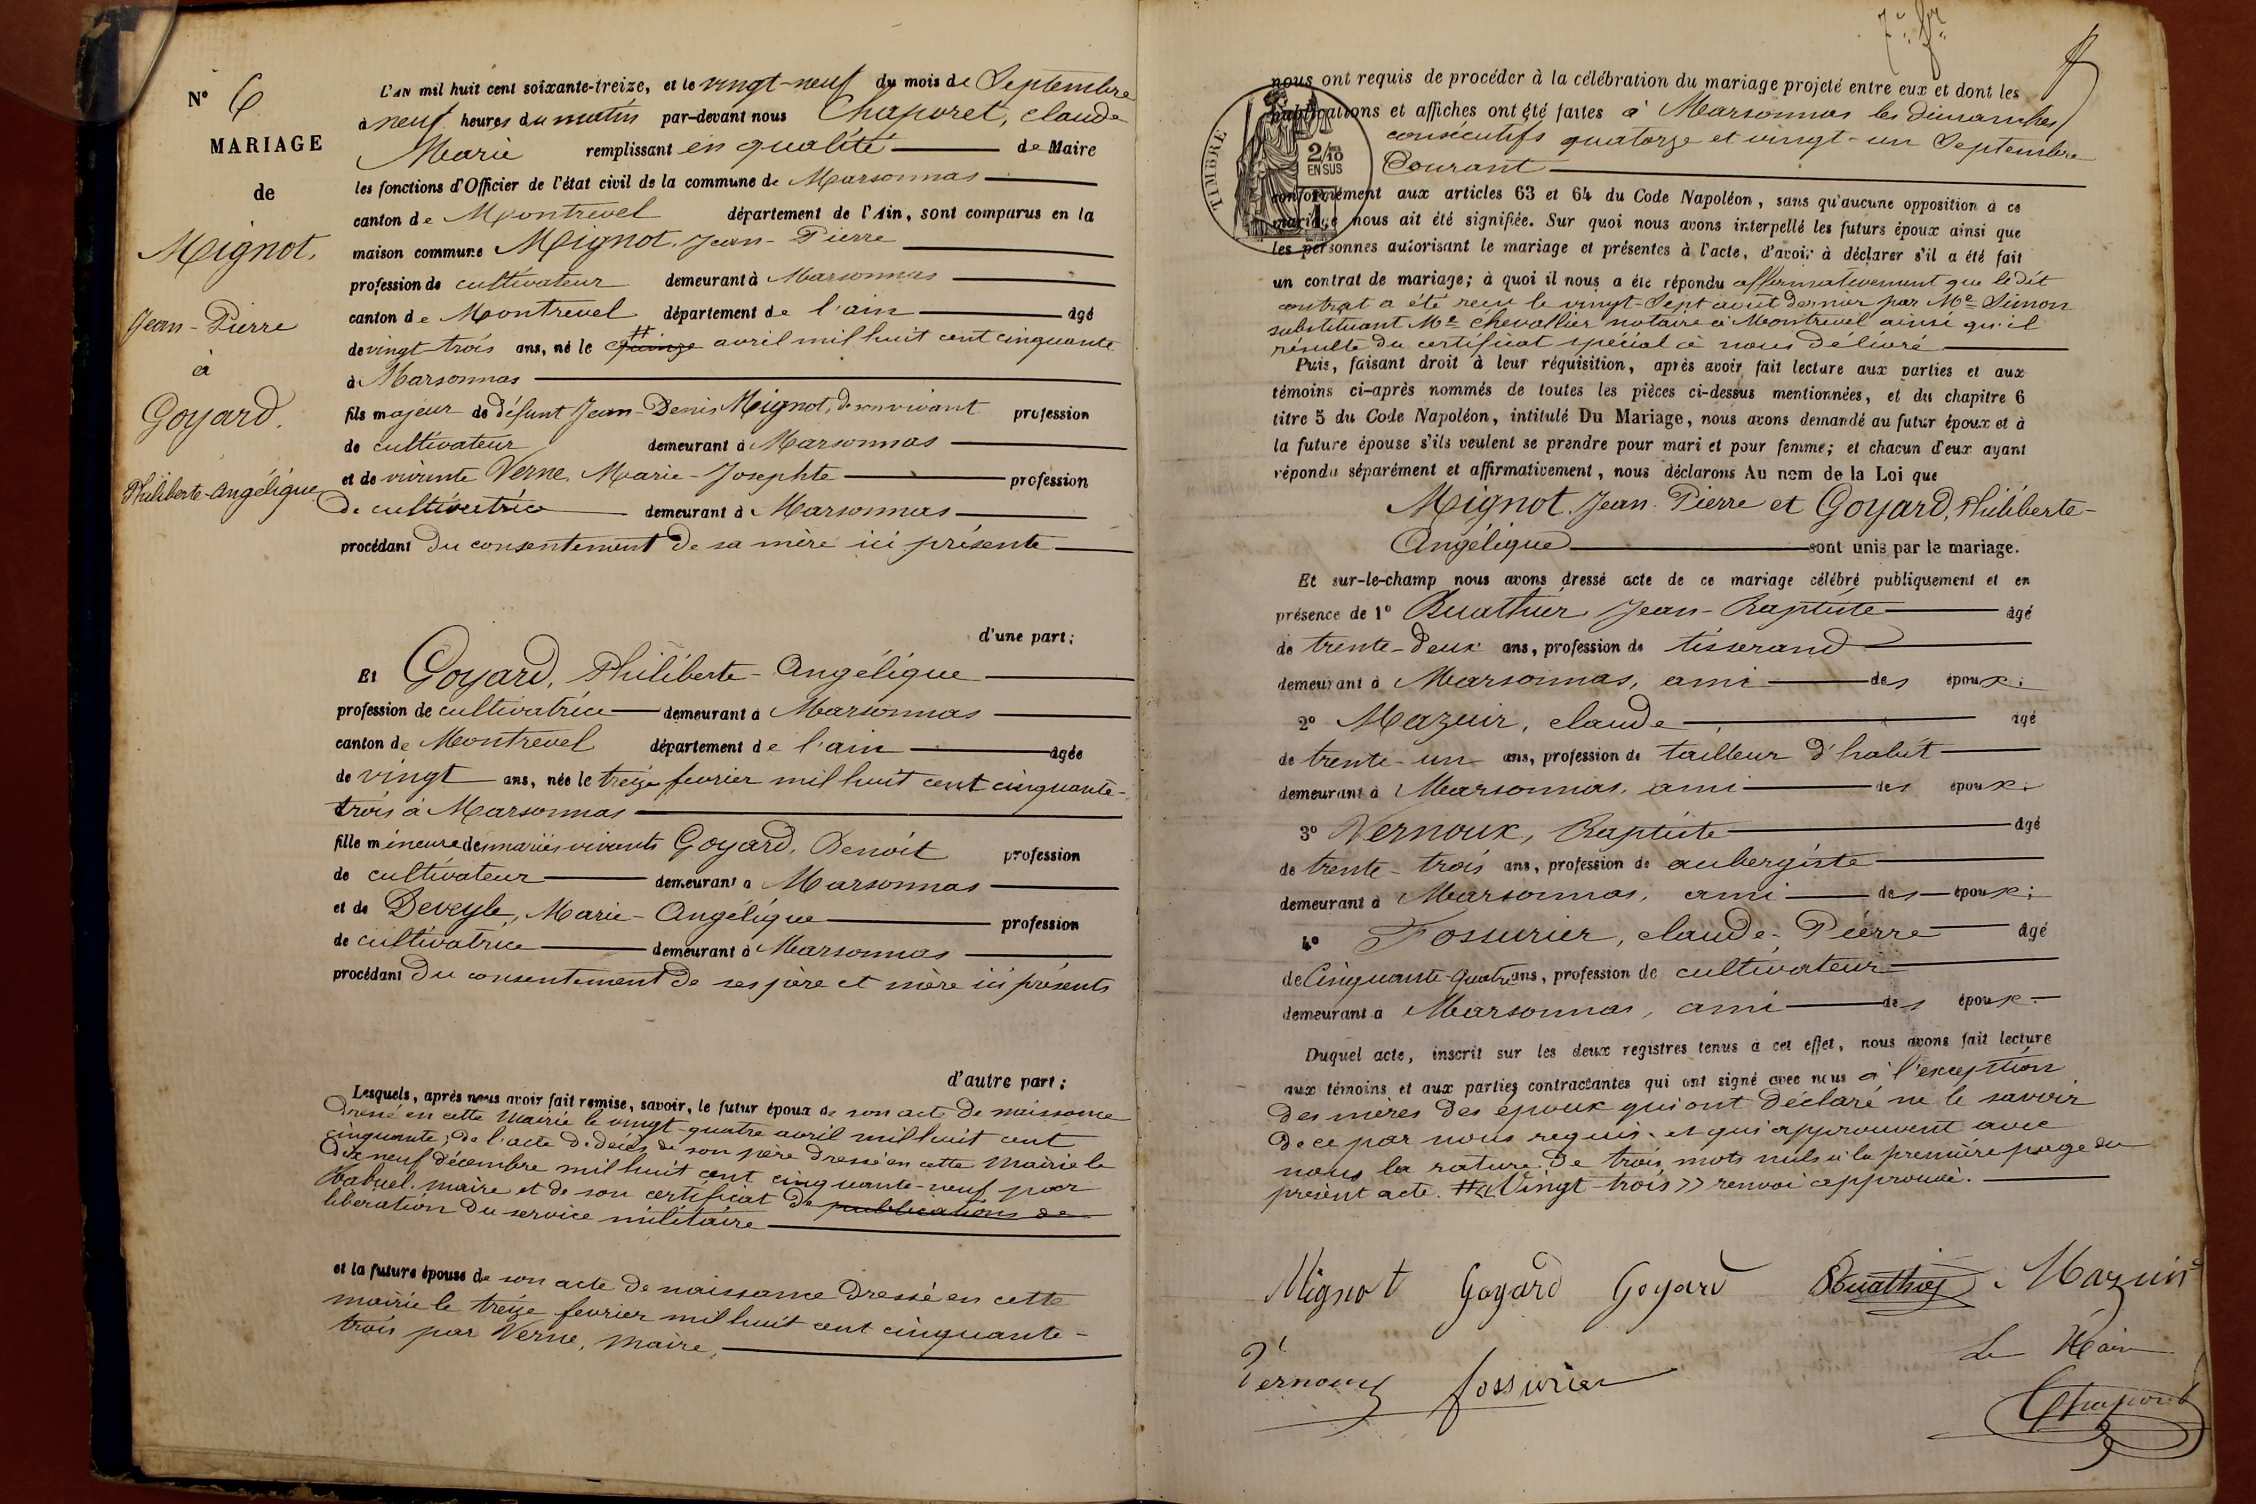 N° 6
MARIAGE
de
Mignot,
Jean-Pierre
à
Goyard,
Philiberte-Angélique
L'AN mil huit cent soixante-treize, et le vingt-neuf du mois de Septembre
à neuf heures du matin par-devant nous Chaporet, Claude
Marie remplissant en qualité de Maire
les fonctions d'Officier de l'état civil de la commune de Marsonnas
canton de Montrevel département de l'Ain, sont comparus en la
maison commune Mignot, Jean-Pierre
profession de cultivateur demeurant à Marsonnas
canton de Montrevel département de l'ain âgé
de vingt-trois ans, né le # quinze avril mil huit cent cinquante
à Marsonnas
fils majeur de défunt Jean-Denis Mignot, de son vivant profession
de cultivateur demeurant à Marsonnas
et de vivante Verne, Marie-Josephte profession
de cultivatrice demeurant à Marsonnas
procédant du consentement de sa mère ici présente
d'une part;
Et Goyard, Philiberte-Angélique
profession de cultivatrice demeurant à Marsonnas
canton de Montrevel département de l'ain âgée
de vingt ans, née le treize fevrier mil huit cent cinquante-
trois à Marsonnas
fille mineure des mariés vivants Goyard, Benoît profession
de cultivateur demeurant à Marsonnas
et de Deveyle, Marie-Angélique profession
de cultivatrice demeurant à Marsonnas
procédant du consentement de ses père et mère ici présents
d'autre part;
Lesquels, après nous avoir fait remise, savoir, le futur époux de son acte de naissance
dressé en cette Mairie le vingt-quatre avril mil huit cent
cinquante; de l'acte de décès de son père dressé en cette Mairie le
dix neuf décembre mil huit cent cinquante-neuf par
maire et de son certificat de publications de
liberation du service militaire
et la future épouse de son acte de naissance dressé en cette
mairie le treize fevrier mil huit cent cinquante-
trois par Verne, Maire,
nous ont requis de procéder à la célébration du mariage projeté entre eux et dont les
publications et affiches ont été faites à Marsonnas les dimanches
consécutifs quatorze et vingt-un Septembre
Courant
TIMBRE
2/10
EN SUS
conformément aux articles 63 et 64 du Code Napoléon, sans qu'aucune opposition à ce
mariage nous ait été signifiée. Sur quoi nous avons interpellé les futurs époux ainsi que
les personnes autorisant le mariage et présentes à l'acte, d'avoir à déclarer s'il a été fait
un contrat de mariage; à quoi il nous a été répondu affirmativement que le dit
contrat a été reçu le vingt-Sept août dernier par Me Simon
substituant Me Chevallier notaire à Montrevel ainsi qu'il
résulte du certificat spécial à nous délivré
Puis, faisant droit à leur réquisition, après avoir fait lecture aux parties et aux
témoins ci-après nommés de toutes les pièces ci-dessus mentionnées, et du chapitre 6
titre 5 du Code Napoléon, intitulé Du Mariage, nous avons demandé au futur époux et à
la future épouse s'ils veulent se prendre pour mari et pour femme; et chacun d'eux ayant
répondu séparément et affirmativement, nous déclarons Au nom de la Loi que
Mignot, Jean-Pierre et Goyard, Philiberte-
Angélique sont unis par le mariage.
Et sur-le-champ nous avons dressé acte de ce mariage célébré publiquement et en
présence de 1° Buathier, Jean-Baptiste âgé
de trente-deux ans, profession de tisserand
demeurant à Marsonnas, ami des époux;
2° Mazuir, claude âgé
de trente-un ans, profession de tailleur d'habit
demeurant à Marsonnas, ami des époux;
3° Vernoux, Baptiste âgé
de trente-trois ans, profession de aubergiste
demeurant à Marsonnas, ami des époux;
4° Fossurier, claude-Pierre âgé
de Cinquante-quatre ans, profession de cultivateur
demeurant à Marsonnas, ami des époux.
Duquel acte, inscrit sur les deux registres tenus à cet effet, nous avons fait lecture
aux témoins et aux parties contractantes qui ont signé avec nous à l'exception
des mères des époux qui ont déclaré ne le savoir
de ce par nous requis, et qui approuvent avec
nous la rature de trois mots nuls à la première page du
présent acte. # « Vingt-trois » renvoi approuvé.
Mignot Goyard Goyard Buathier Mazuir
Vernoux fossurier Le Maire
Chaporet